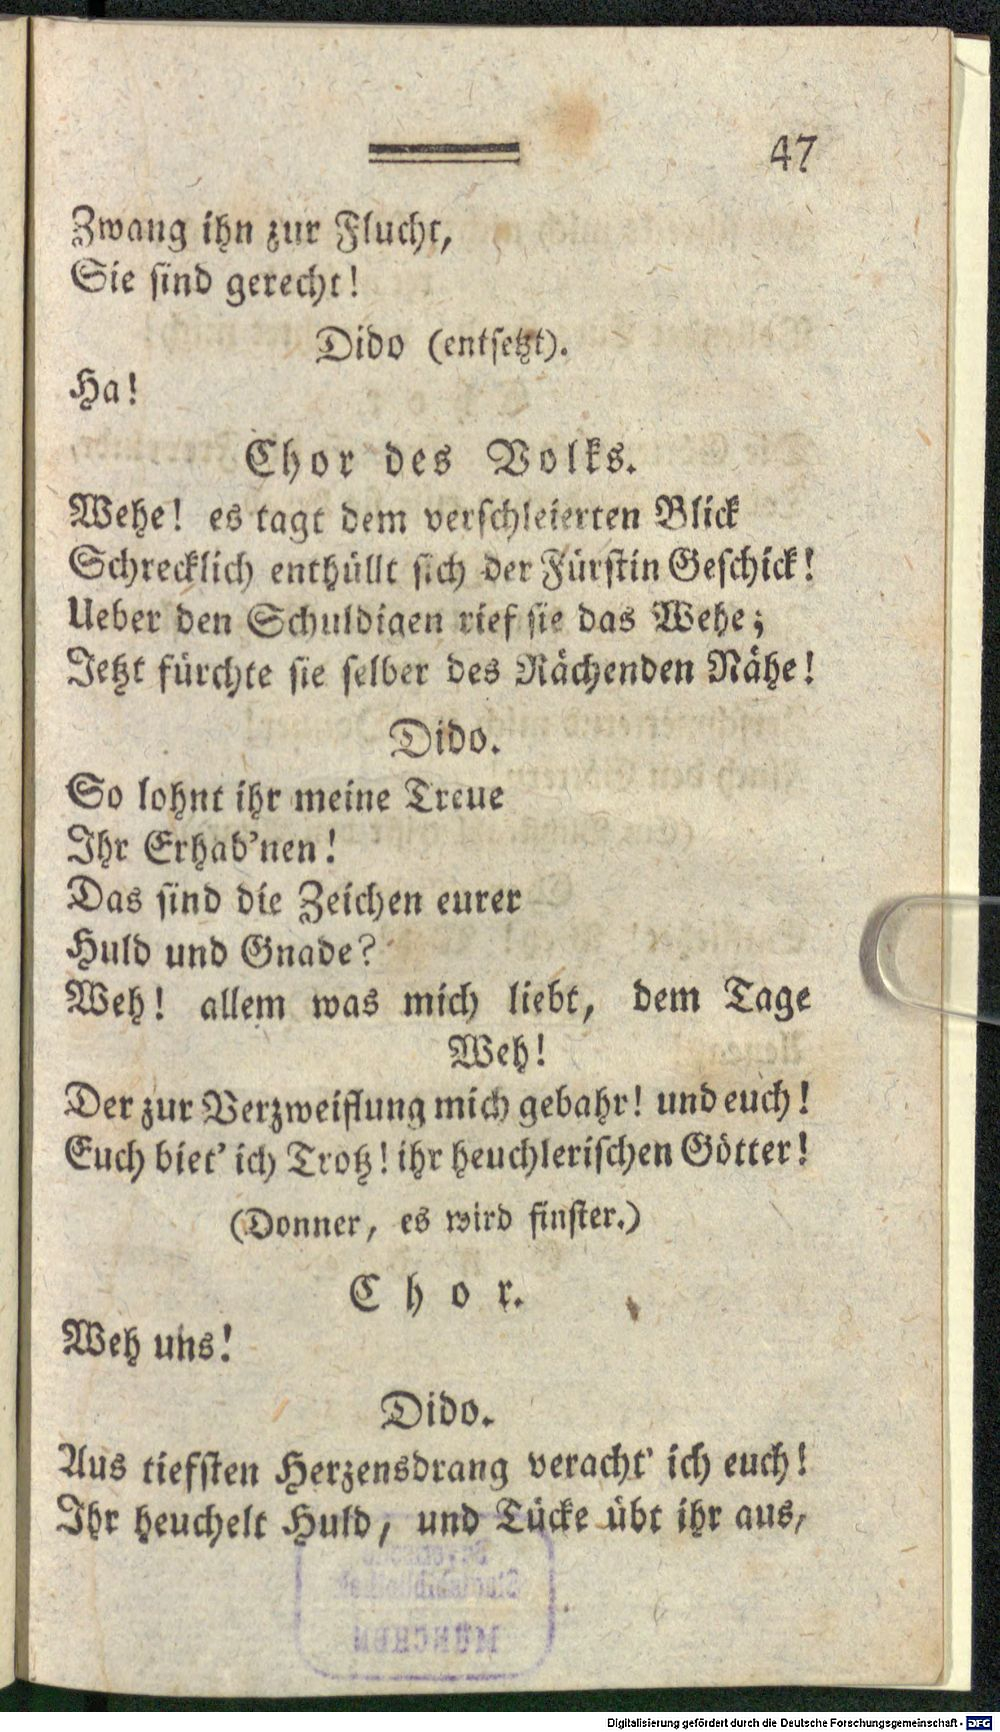 47
Zwang ihn zur Flucht,
Sie sind gerecht!
Dido (entsetzt).
Ha!
Chor des Volks.
Wehe! es tagt dem verschleierten Blick
Schrecklich enthüllt sich der Fürstin Geschick!
Ueber den Schuldigen rief sie das Wehe;
Jetzt fürchte sie selber des Rächenden Nähe!
Dido.
So lohnt ihr meine Treue
Ihr Erhab'nen!
Das sind die Zeichen eurer
Huld und Gnade?
Weh! allem was mich liebt, dem Tage
Weh!
Der zur Verzweiflung mich gebahr! und euch!
Euch biet' ich Trotz! ihr heuchlerischen Götter!
(Donner, es wird finster.)
Chor.
Weh uns!
Dido.
Aus tiefsten Herzensdrang veracht' ich euch!
Ihr heuchelt Huld, und Tücke übt ihr aus,
Staatsbibliothek
MÜNCHEN
Digitalisierung gefördert durch die Deutsche Forschungsgemeinschaft - DFG